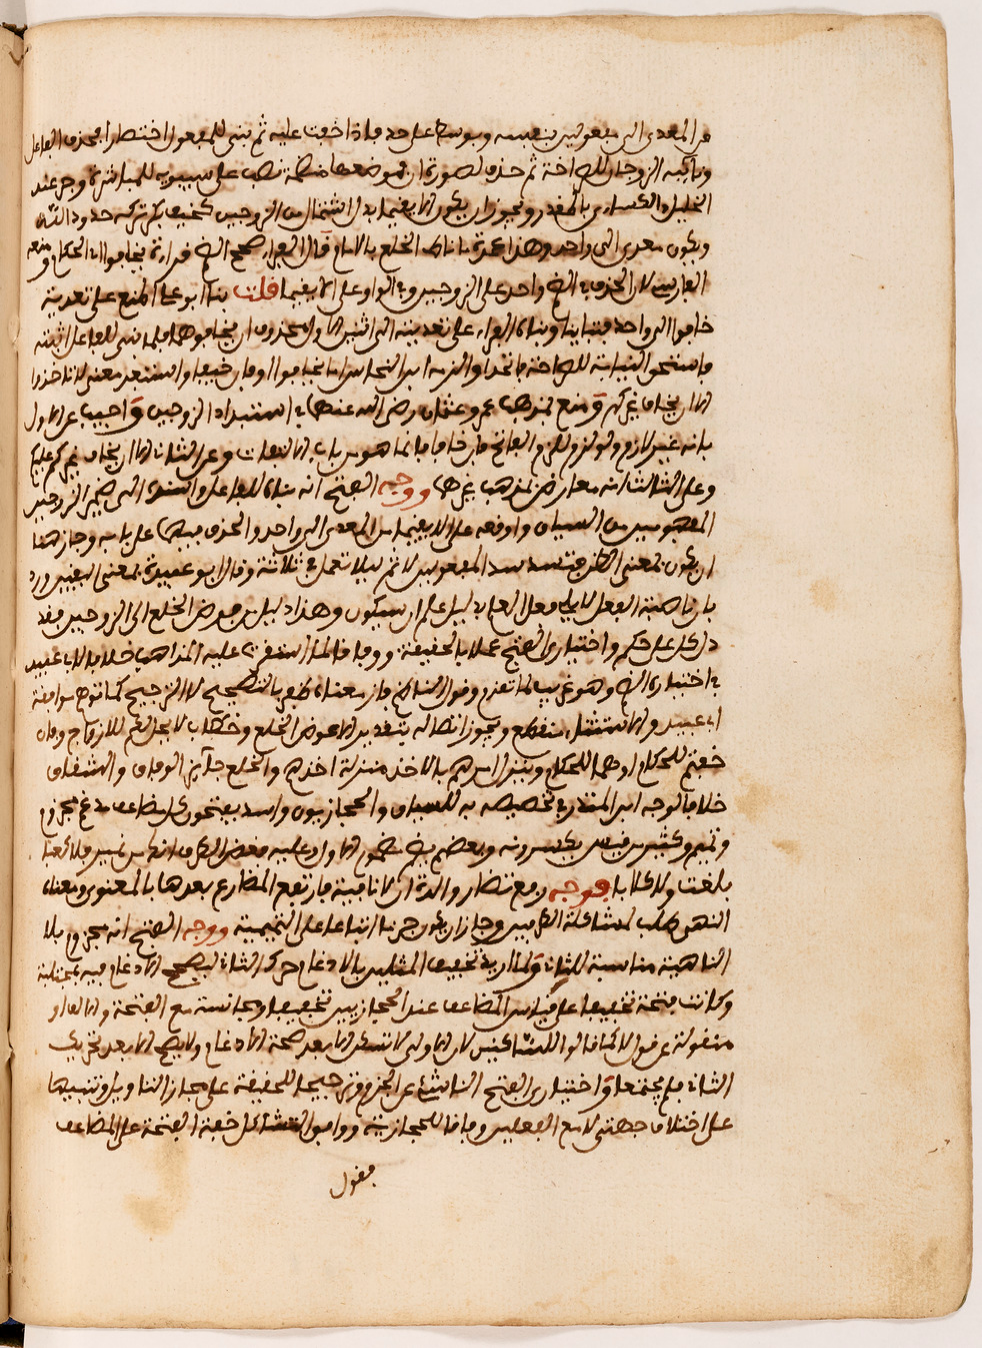 من المعدى الى مفعولين بنفسه وبوساطة على حد فاذا خفت عليه ثم بنى للمفعول اختصارا بحذف الفاعل
ونائبه الزوجان للصراحة ثم حذف لصورة ان فموضعها نصب على سيبويه للمباشرة وجر عند
الخليل والكسائى بالمقدر ويجوز ان يكون ان لا يقيما بدل اشتمال من الزوجين كخيف بكر تركه حدود الله
ويكون معدى الى واحد وهذا عمدة ناقل الخلع بالامام قال الفراء صحح الضم قراءة يخافوا اى الحكام ومنعه
الفارسى لان الخوف فى الضم واحد على الزوجين وفى الواو على ان لا يقيما قلت بنى ابو على المنع على تعدية
خافوا الى واحد فتباينا وبناء الفراء على تعديته الى اثنين الاول محذوف اى يخافوهما فلما بنى للفاعل اثبته
فاستحق النيابة للصراحة فاتحدا والزمه ابن النحاس ان يخافوا او فان خيفا واستبعد معنى لانا حذرا
الا ان يخاف غيركم ومنع بمذهب عمر وعثمان رضى الله عنهما فى استبداد الزوجين واجيب عن الاول
بانه غير لازم ولو لزم ولزم الفاتح فان خافا فانما هو من باب الالتفات وعن الثانى الا ان يخاف غيركم عليكم
وعلى الثالث انه معارض بمذهب غيرهما ووجه الفتح انه بناه للفاعل واسنده الى ضمير الزوجين
المفهومين من السياق واوقعه على ان لا يقيما من المعدى الى واحد والخوف فيهما على بابه وجاز هنا
ان يكون بمعنى الظن فتسد مسد المفعولين لا ثم ليلا تعمل فى ثلاثة وقال ابو عبيدة بمعنى اليقين ورد
بان ناصبة الفعل لا يليه فعل العلم بدليل علم ان سيكون وهذا دليل من فوض الخلع الى الزوجين فقد
دل كل على حكم واختيارى الفتح عملا بالحقيقة ووفاقا لما استقرت عليه المذاهب خلافا لابى عبيد
فى اختياره الضم وهو غريب لما تقدم وقول الناظم فاز معناه ظفر بالتصحيح لا الترجيح كما توهم موافقة
ابى عبيد والاستثناء منقطع ويجوز اتصاله بتقدير الا عوض الخلع وخطاب لا يحل لكم للازواج وفان
خفتم للحكام او هما للحكام وينزل امرهم بالاخذ منزلة اخذهم والخلع جائز الوفاق والشقاق
خلافا لوجه ابن المنذر فى تخصيصه به للسياق والحجازيون واسد يفتحون كل مضاعف مدغم مجزوم
وتميم وكثير من قيس يكسرونه وبعضهم يضم مضموم الاول وعليه فغض الطرف انك من نمير فلا كعبا
بلغت ولا كلابا فوجه رفع تضار والدة ان لا نافية فارتفع المضارع بعدها بالمعنوى ومعناه
النهى طلب لمشاكلة الطرفين وجاز ان يكون جزما اتباعا على التميمية ووجه الفتح انه مجزوم بلا
الناهية مناسبة للثانى ولما اريد تخفيف المثلين بالادغام حرك الثانى ليصح الادغام فيه بمختلفة
وكانت فتحة تخفيفا على قياس المضاعف عند الحجازيين تخفيفا ومجانسة مع الفتحة والالف او
منقولة عن الاول لا كما قالوا للساكنين لان الاولى لا تسكن الا بعد صحة الادغام ولا يصح الا بعد تحريك
الثانى فلم يجتمعا واختيارى الفتح الناشئ عن الجزم ترجيحا للحقيقة على مجاز التاويل وتنبيها
على اختلاف جهتى لا مع الفعلين وفاقا للحجازيتة ووافق التشاكل خفة الفتحة على المضاعف
فقول